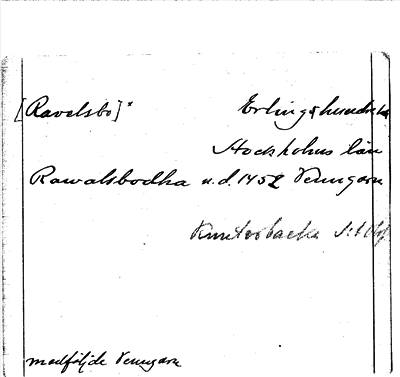 [Ravelsbo]* Erlingshundra
Stockholms län
Rawalsbodha u.d. 1452 Venngarn
Knutsbacka
medföljde Venngarn